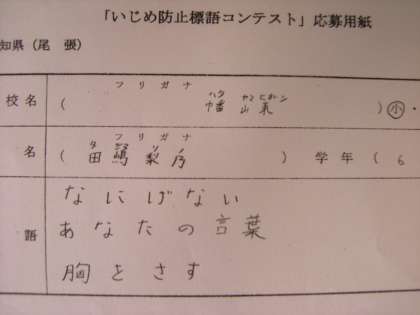 「いじめ防止標語コンテスト」応募用紙
知県（尾 張）
フリガナ
校名 （ 幡山東 ）小・
フリガナ
名 （ 田嶋梨序 ） 学年（ 6
なにげない
語 あなたの言葉
胸をさす